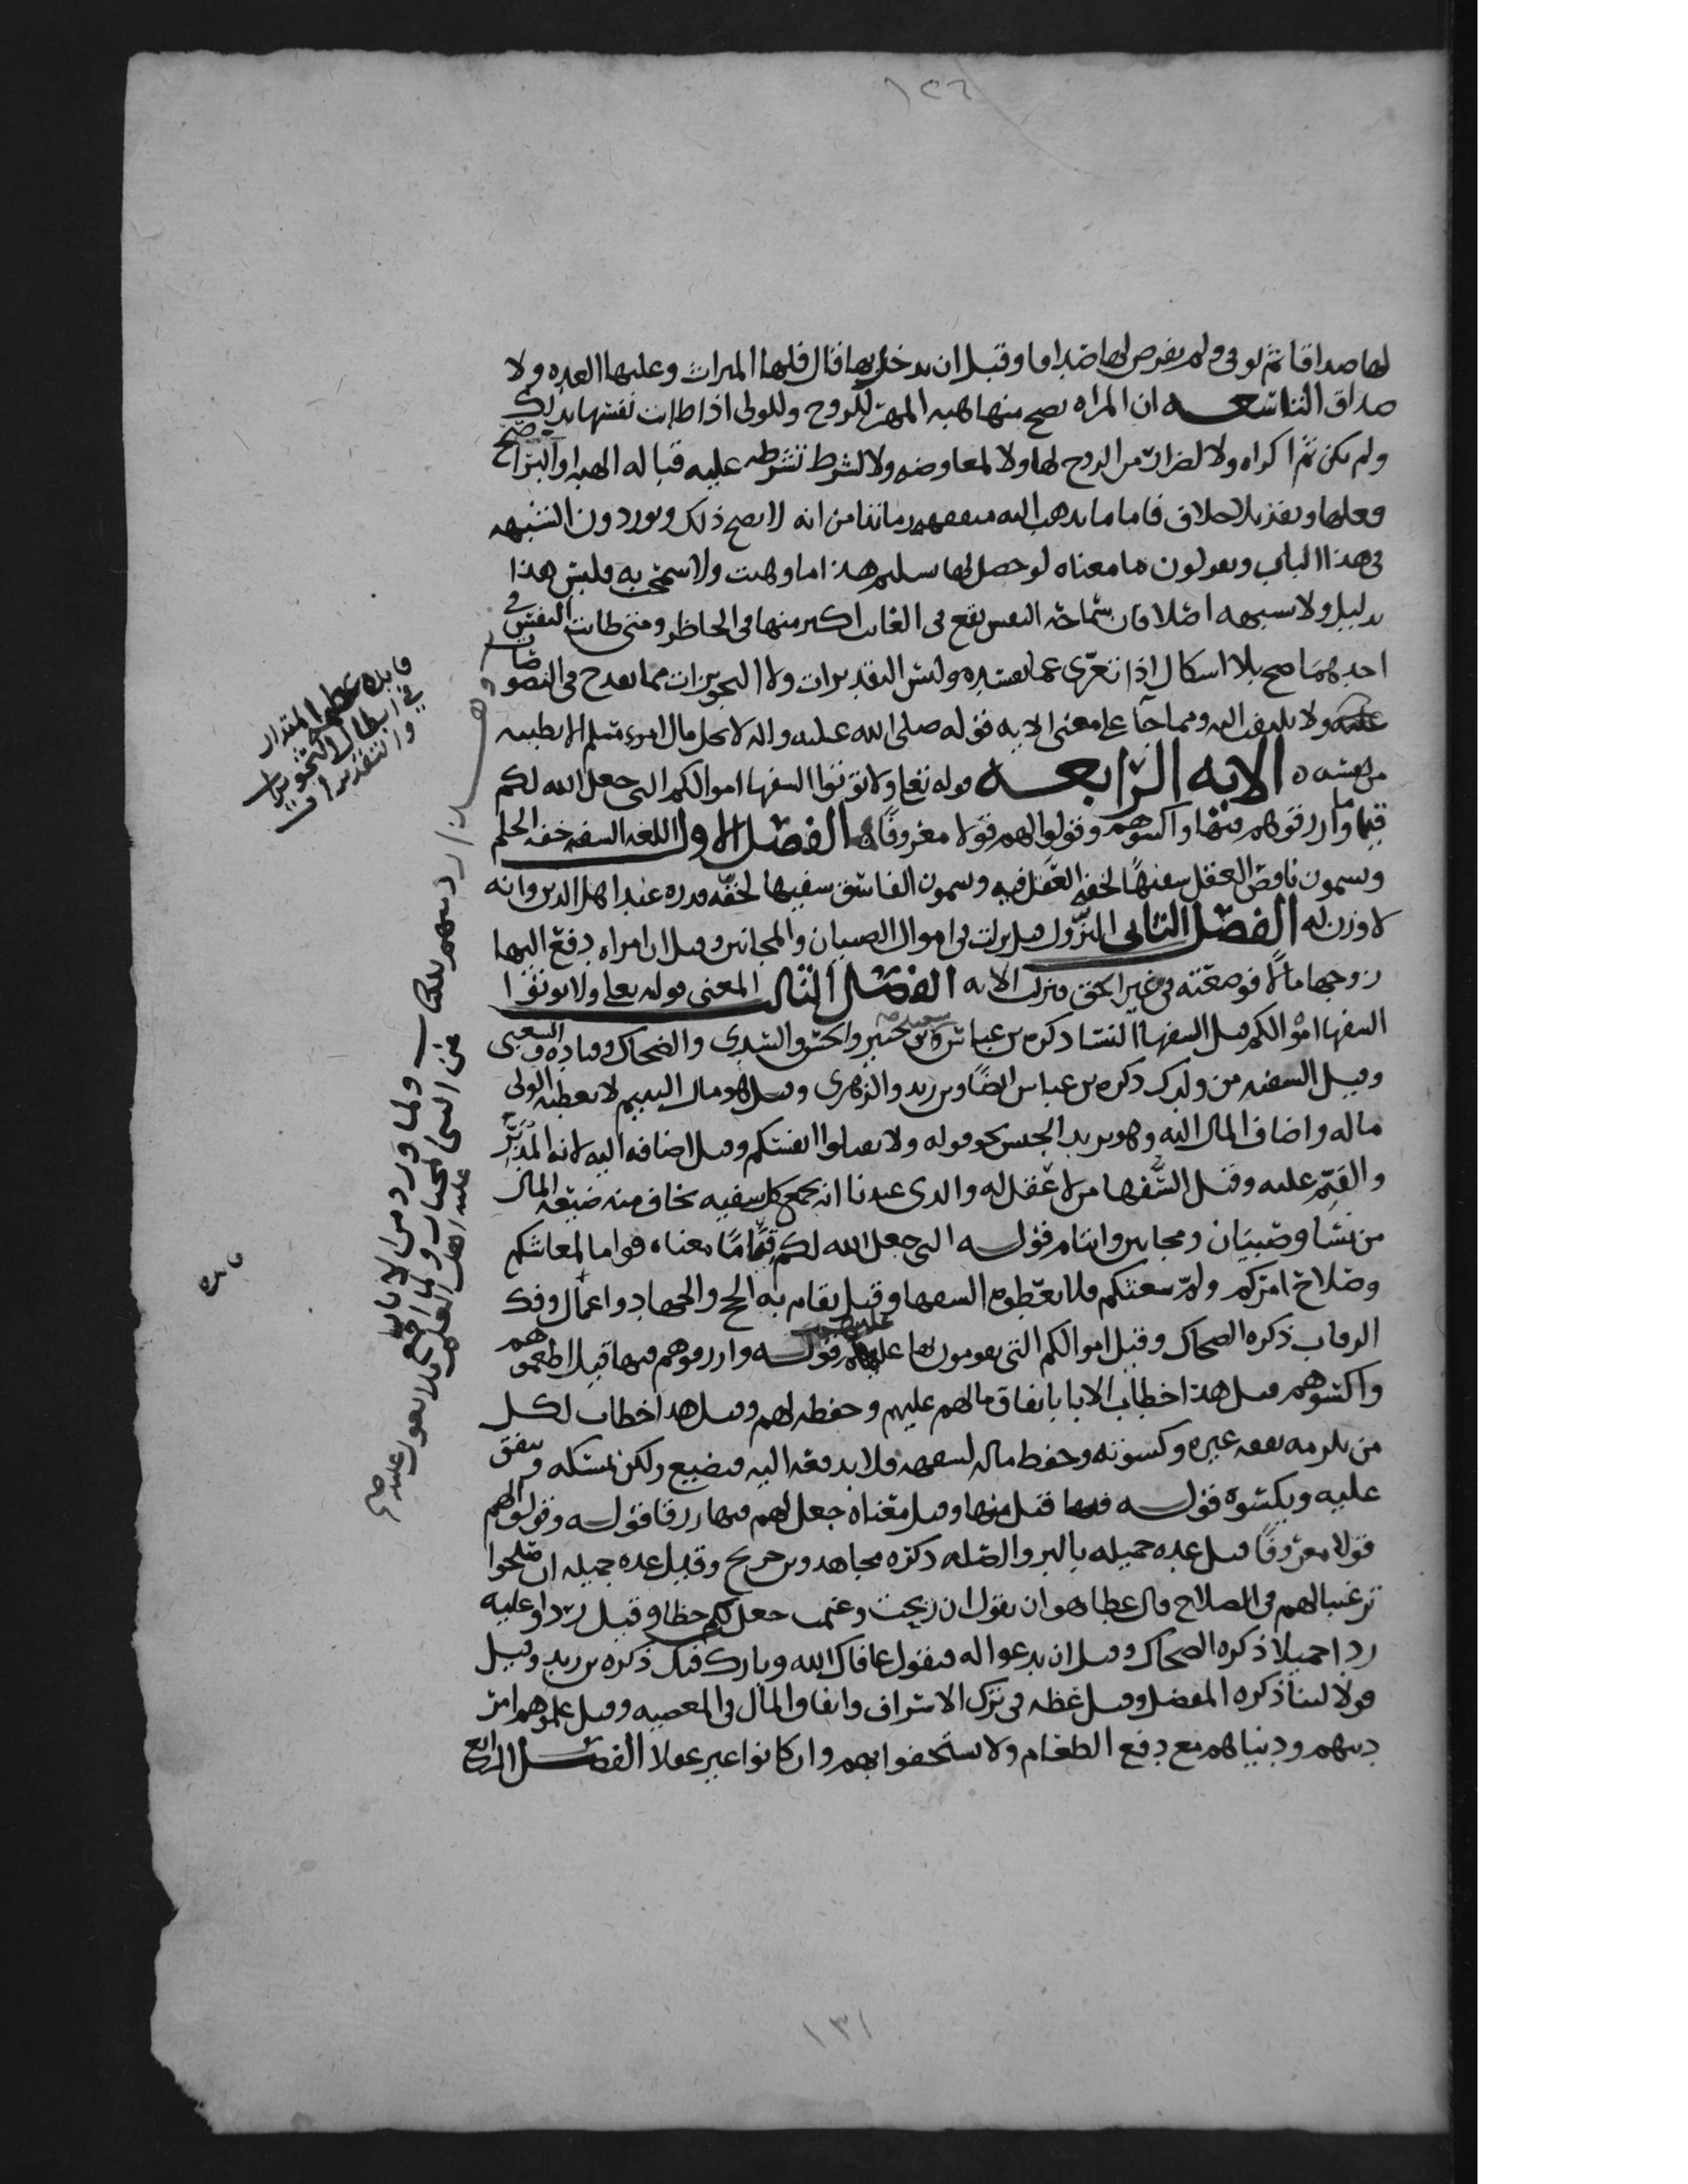 ١٢٦
لها صداقا ثم توفي ولم يفرض لها صداقا وقبل ان يدخل بها قال فلها الميراث وعليها العده ولا
صداق التاسعه ان المراه يصح منها هبه المهر للزوج وللولى اذا طابت نفسها بذلك
ولم يكن ثم اكراه ولا لضرار من الزوج لها ولا لمعاوضه ولا لشرط تشرطه عليه قباله الهبه او البرا صح
فعلها ونفذ بلا خلاف فاما ما يذهب اليه متفقهه زماننا من انه لا يصح ذلك ويوردون الشبهه
فى هذا الباب ويقولون ما معناه لو حصل لها سليم هذا ما وهبت ولا سمحت به فليس هذا
بدليل ولا شبهه اصلا فان سماحه النفس تقع فى الغايب اكبر منها فى الحاظر ومتى طابت النفس فى
احدهما صح بلا اشكال اذا تعرى عما يفسده وليس التقديرات ولا التجويزات مما يقدح فى النصوصات
ولا يلتفت اليه ومما جآ على معنى الايه قوله صلى الله عليه واله لا يحل مال امرء مسلم الا بطيبه
من نفسه ه الايه الرابعه قوله تعا ولا توتوا السفها اموالكم التى جعل الله لكم
قيما وارزقوهم فيها واكسوهم وقولوا لهم قولا معروفا ه الفصل الاول اللغه السفه خفه الحلم
ويسمون ناقص العقل سفيها لخفه العقل فيه ويسمون الفاسق سفيها لخفه قدره عند اهل الدين وانه
لا وزن له الفصل الثانى النزول قيل نزلت فى اموال الصبيان والمجانين وقيل ان امراه دفع اليها
زوجها مالا فوضعته فى غير الحق فنزلت الايه الفصل الثالث المعنى قوله تعلى ولا توتوا
السفها اموالكم قيل السفها النسا ذكره بن عباس وسعيد بن جبير والحسن والسدى والضحاك وقتاده والشعبى
وقيل السفيه من ولدك ذكره بن عباس ايضا وبن زيد والزهرى وقيل هو مال اليتيم لا يعطيه الولى
ماله واضاف المال اليه وهو يريد الجنس نحو قوله ولا تقتلوا انفسكم وقيل اضافه اليه لانه المدبر
والقيم عليه وقيل السفها من لا عقل له والذى عندنا انه يجمع كل سفيه يخاف منه ضيعه المال
من نسا وصبيان ومجانين وايتام قوله التى جعل الله لكم قياما معناه قواما لمعاشكم
وصلاح امركم ولم سعتكم فلا تعطوه السفها وقيل يقام به الحج والجهاد واعمال وفك
الرقاب ذكره الضحاك وقيل اموالكم التى تقومون بها عليهم قوله وارزقوهم فيها قيل اطعموهم
واكسوهم قيل هذا خطاب الابا بانفاق مالهم عليهم وحفظه لهم وقيل هذا خطاب لكل
من يلزمه نفقه غيره وكسوته وحفظ ماله لسفهه فلا يدفعه اليه فيضيع ولكن يمسكه وينفق
عليه ويكسوه قوله فيها قيل منها وقيل معناه جعل لهم فيها رزقا قوله وقولوا لهم
قولا معروفا قيل عده جميله بالبر والصله ذكره مجاهد وبن جريح وقيل عده جميله ان صلحوا
ترغيبا لهم فى الصلاح قال عطا هو ان يقول ان ربحت وغنمت جعل لكم حظا وقيل رد او عليه
ردا جميلا ذكره الضحاك وقيل ان يدعوا له فيقول عافاك الله وبارك فيك ذكره بن زيد وقيل
قولا لينا ذكره المفضل وقيل عظه فى ترك الاسراف وانفاق المال فى المعصيه وقيل علموهم امر
دينهم ودنياهم مع دفع الطعام ولا تستخفوا بهم وان كانوا غير عقلا الفصل الرابع
فايده عظيمه المقدار
فى ابطال التجويزات
والتقديرات
وهـذا رد منهم للكتاب ولما ورد من الاثار
عن النبى المختار ولما اجمع
عليه اهل العلم فلا يعول عليه صح
فايده
١٣١